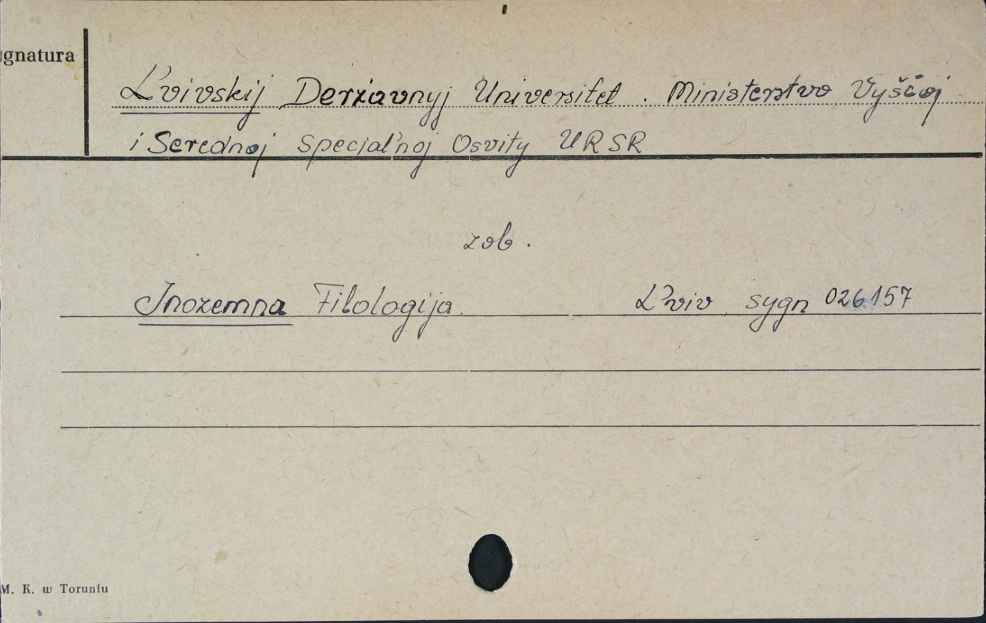 ygnatura
L'vivskij Deržavnyj Universitet. Ministerstvo Vyščoj
i Serednoj Special'noj Osvity URSR
zob.
Inozemna Filologija. L'viv sygn 026.157
M. K. w Toruniu